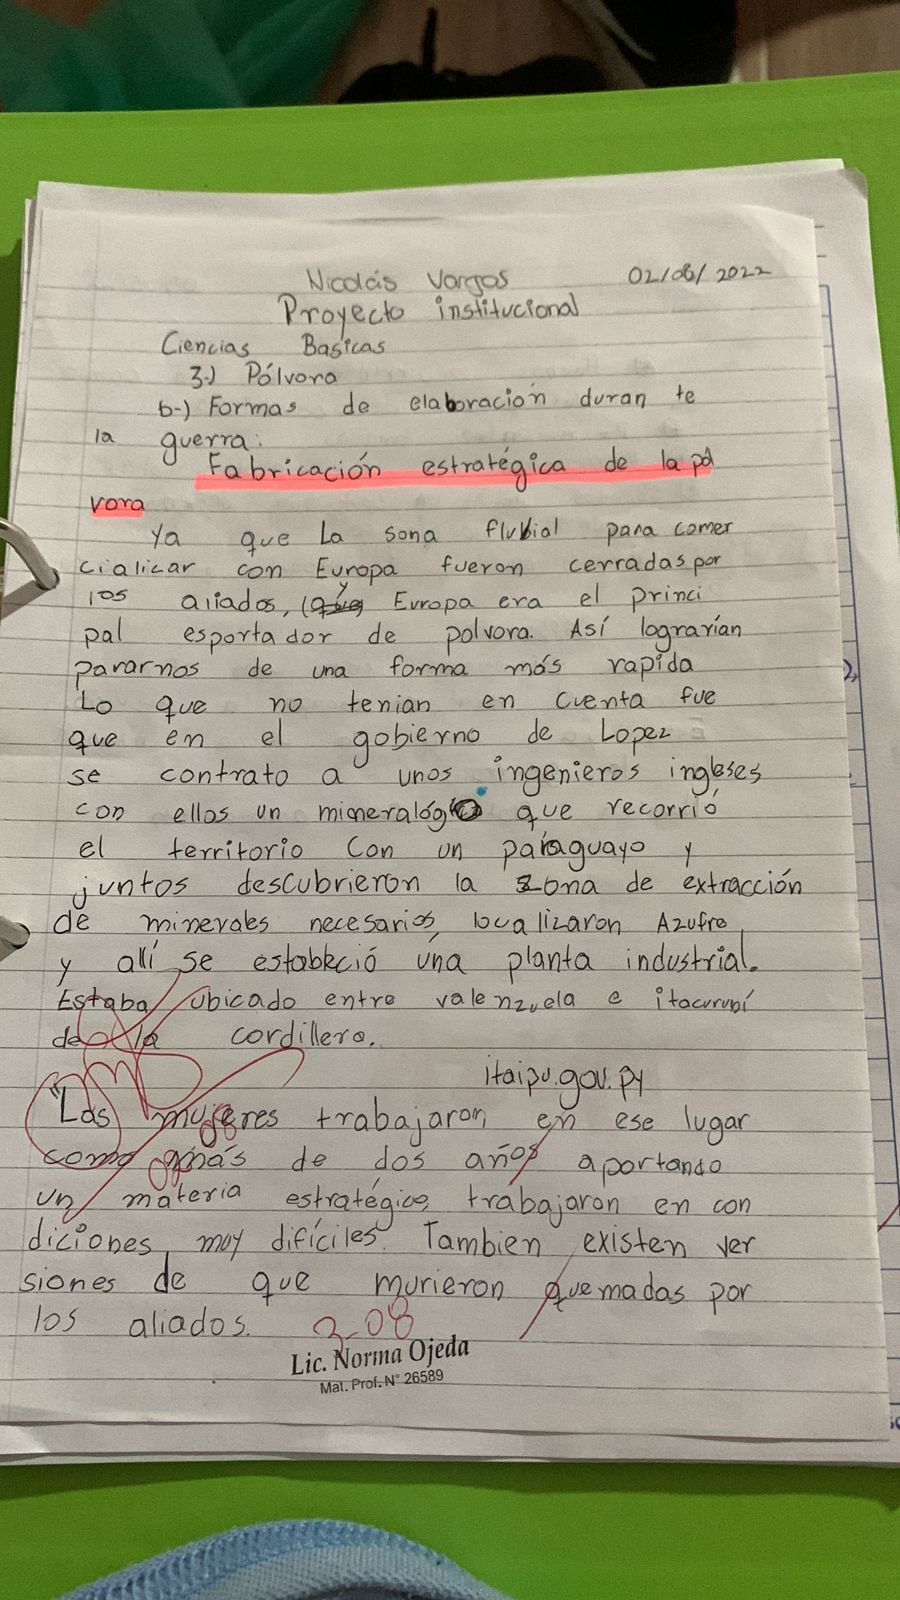 Nicolás Vargas 02/08/2022
Proyecto institucional
Ciencias Basicas
3-) Pólvora
b-) Formas de elaboración duran te
la guerra:
Fabricación estratégica de la pól
vora
Ya que La sona flubial para comer
cializar con Europa fueron cerradas por
los aliados, y Europa era el princi
pal esportador de polvora. Así lograrían
pararnos de una forma más rapida
Lo que no tenian en cuenta fue
que en el gobierno de Lopez
se contrato a unos ingenieros ingleses
con ellos un mineralógo que recorrió
el territorio Con un paraguayo y
juntos descubrieron la zona de extracción
de minerales necesarios, localizaron Azufre
y allí se estableció una planta industrial.
Estaba ubicado entre valenzuela e itacurubí
de la cordillera.
itaipu.gov.py
"Las mujeres trabajaron en ese lugar
como más de dos años aportando
un materia estratégico, trabajaron en con
diciones muy difíciles. Tambien existen ver
siones de que murieron quemadas por
los aliados.
3-08
Lic. Norma Ojeda
Mat. Prof. N° 26589